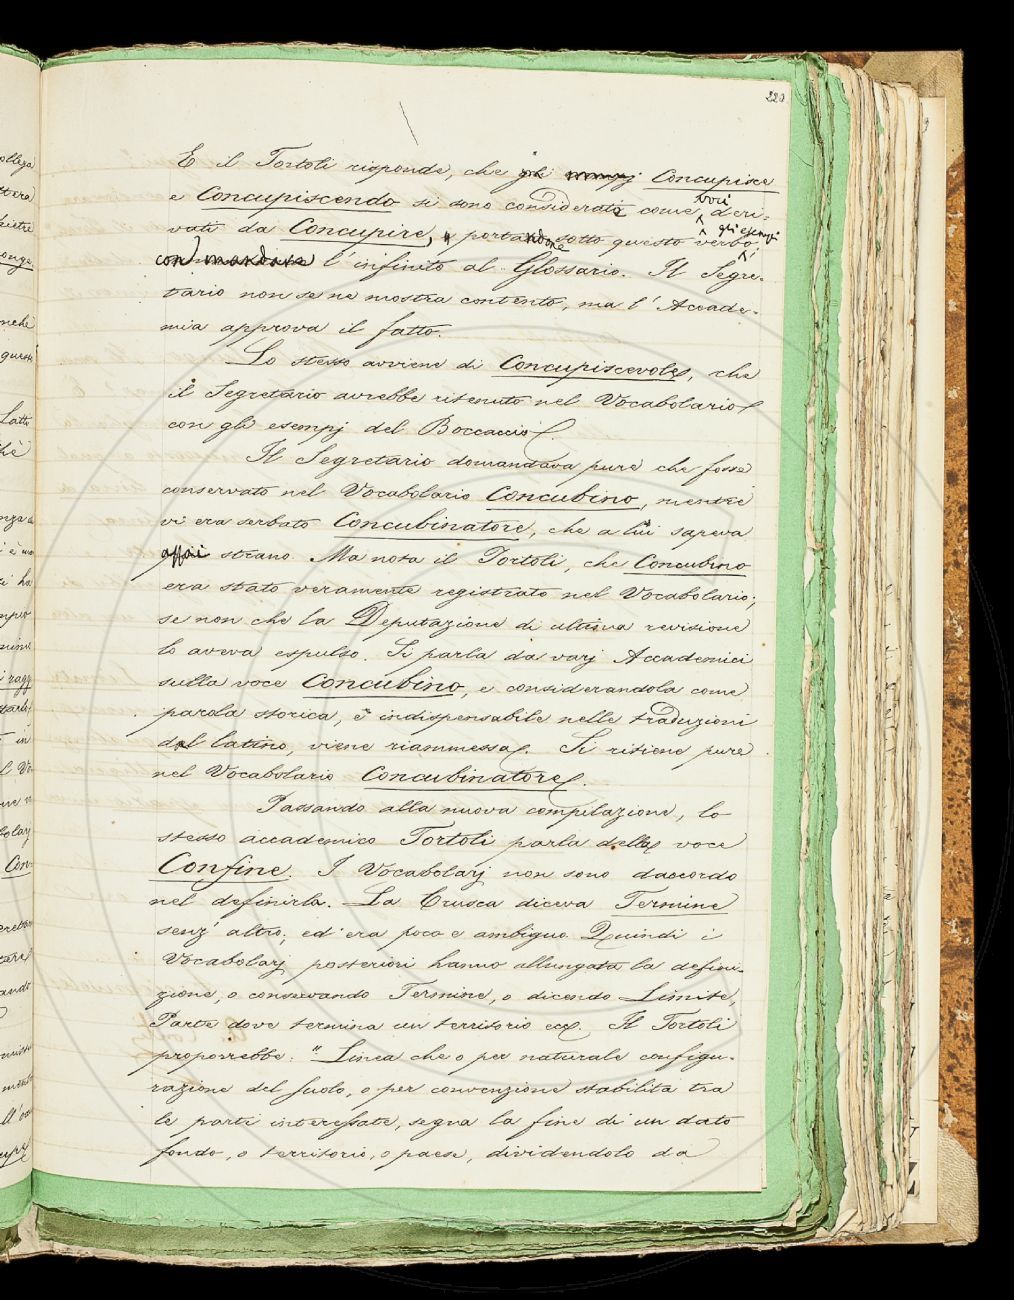 220
E il Tortoli risponde, che Concupisce
e Concupiscendo si sono considerate come voci deri-
vati da Concupire, portandone sotto questo verbo gli esempj
con mandare l'infinito al Glossario. Il Segre-
tario non se ne mostra contento, ma l'Accade-
mia approva il fatto.
Lo stesso avviene di Concupiscevole, che
il Segretario avrebbe ritenuto nel Vocabolario
con gli esempj del Boccaccio.
Il Segretario domandava pure che fosse
conservato nel Vocabolario Concubino, mentre
vi era serbato Concubinatore, che a lui sapeva
assai strano. Ma nota il Tortoli, che Concubino
era stato veramente registrato nel Vocabolario;
se non che la Deputazione di ultima revisione
lo aveva espulso. Si parla da varj Accademici
sulla voce Concubino, e considerandola come
parola storica, e indispensabile nelle traduzioni
dal latino, viene riammessa. Si ritiene pure
nel Vocabolario Concubinatore.
Passando alla nuova compilazione, lo
stesso accademico Tortoli parla della voce
Confine. I Vocabolarj non sono daccordo
nel definirla. La Crusca diceva Termine
senz'altro; ed era poco e ambiguo. Quindi i
Vocabolarj posteriori hanno allungata la defini-
zione, o conservando Termine, o dicendo Limite,
Parte dove termina un territorio ecc. Il Tortoli
proporrebbe: "Linea che o per naturale configu-
razione del suolo, o per convenzione stabilita tra
le parti interessate, segna la fine di un dato
fondo, o territorio, o paese, dividendolo da